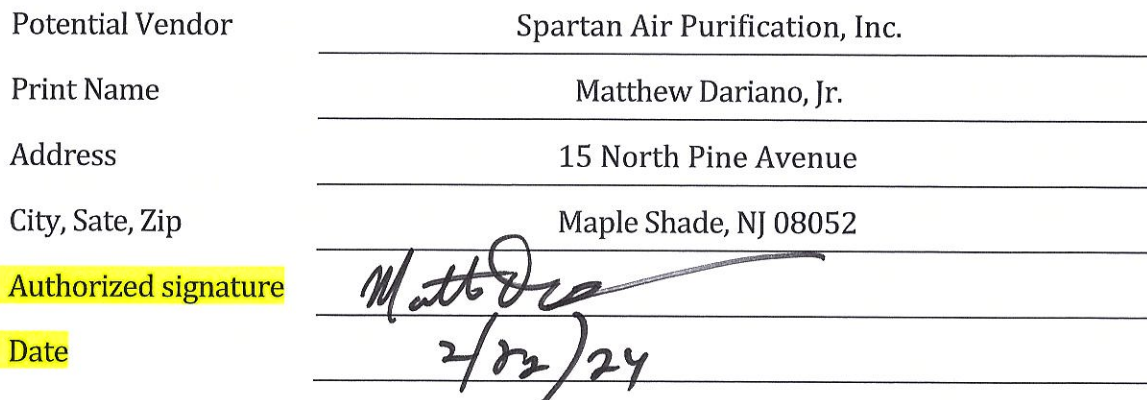 Potential Vendor Spartan Air Purification, Inc.
Print Name Matthew Dariano, Jr.
Address 15 North Pine Avenue
City, Sate, Zip Maple Shade, NJ 08052
Authorized signature Matt
Date 2/22/24